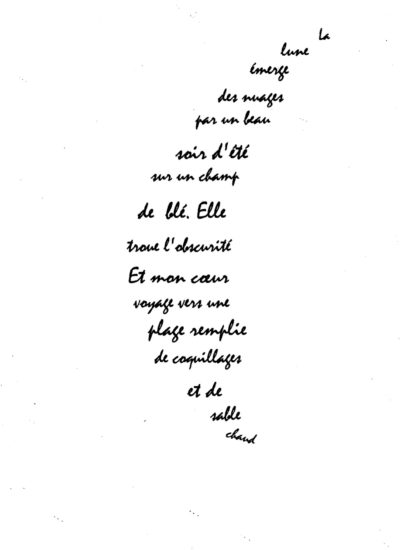 La
lune
émerge
des nuages
par un beau
soir d'été
sur un champ
de blé. Elle
troue l'obscurité
Et mon cœur
voyage vers une
plage remplie
de coquillages
et de
sable
chaud